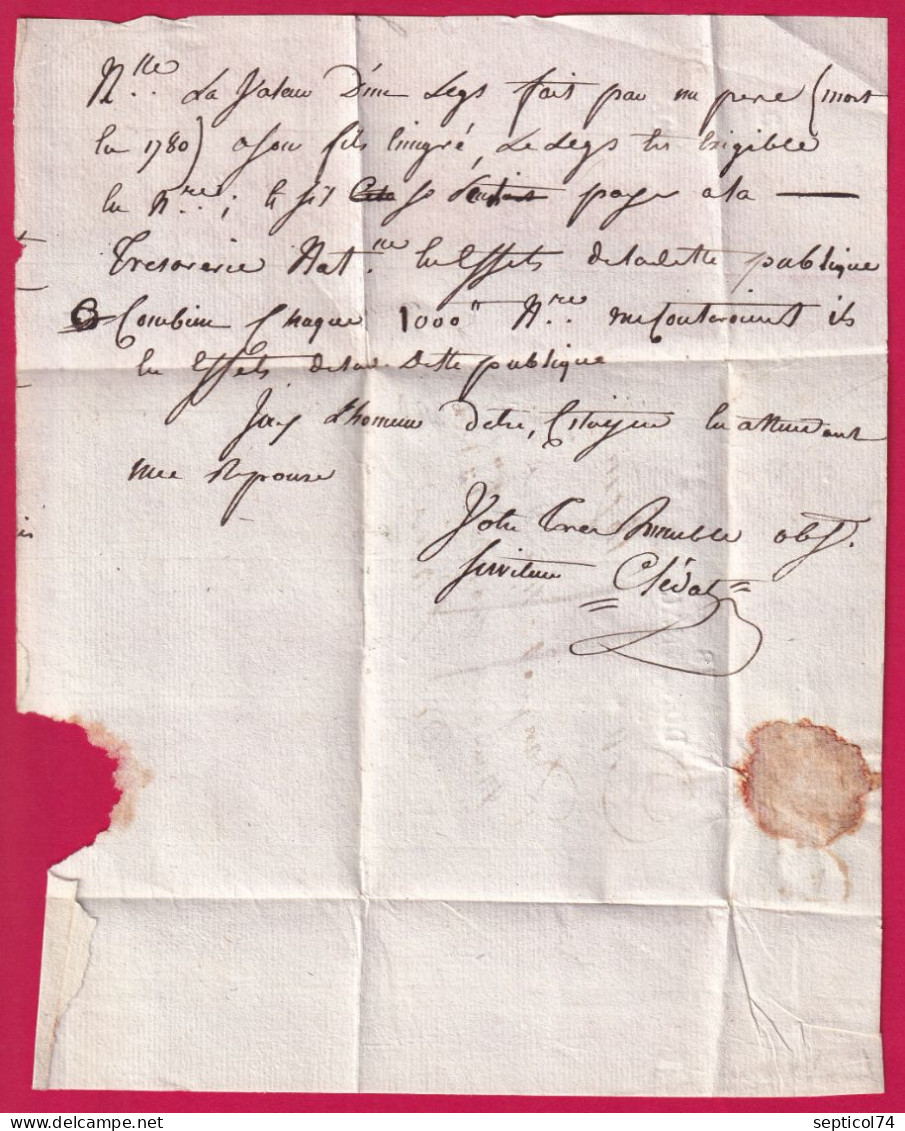 N.lle La Valeur D'un Legs fait par un pere (mort
En 1780) a son fils Emigré, Le Legs Est Exigible
En N.re ; le fils payer a la —
Tresorerie Nat.lle En Effets de la dette publique
Combien Chaque 1000 " N.re me Couteroient ils
En Effets de la Dette publique
Jay L'honneur detre, Citoyen En attendant
une Reponse
Votre Tres humble obt.
Serviteur = Clédat =
septicol74